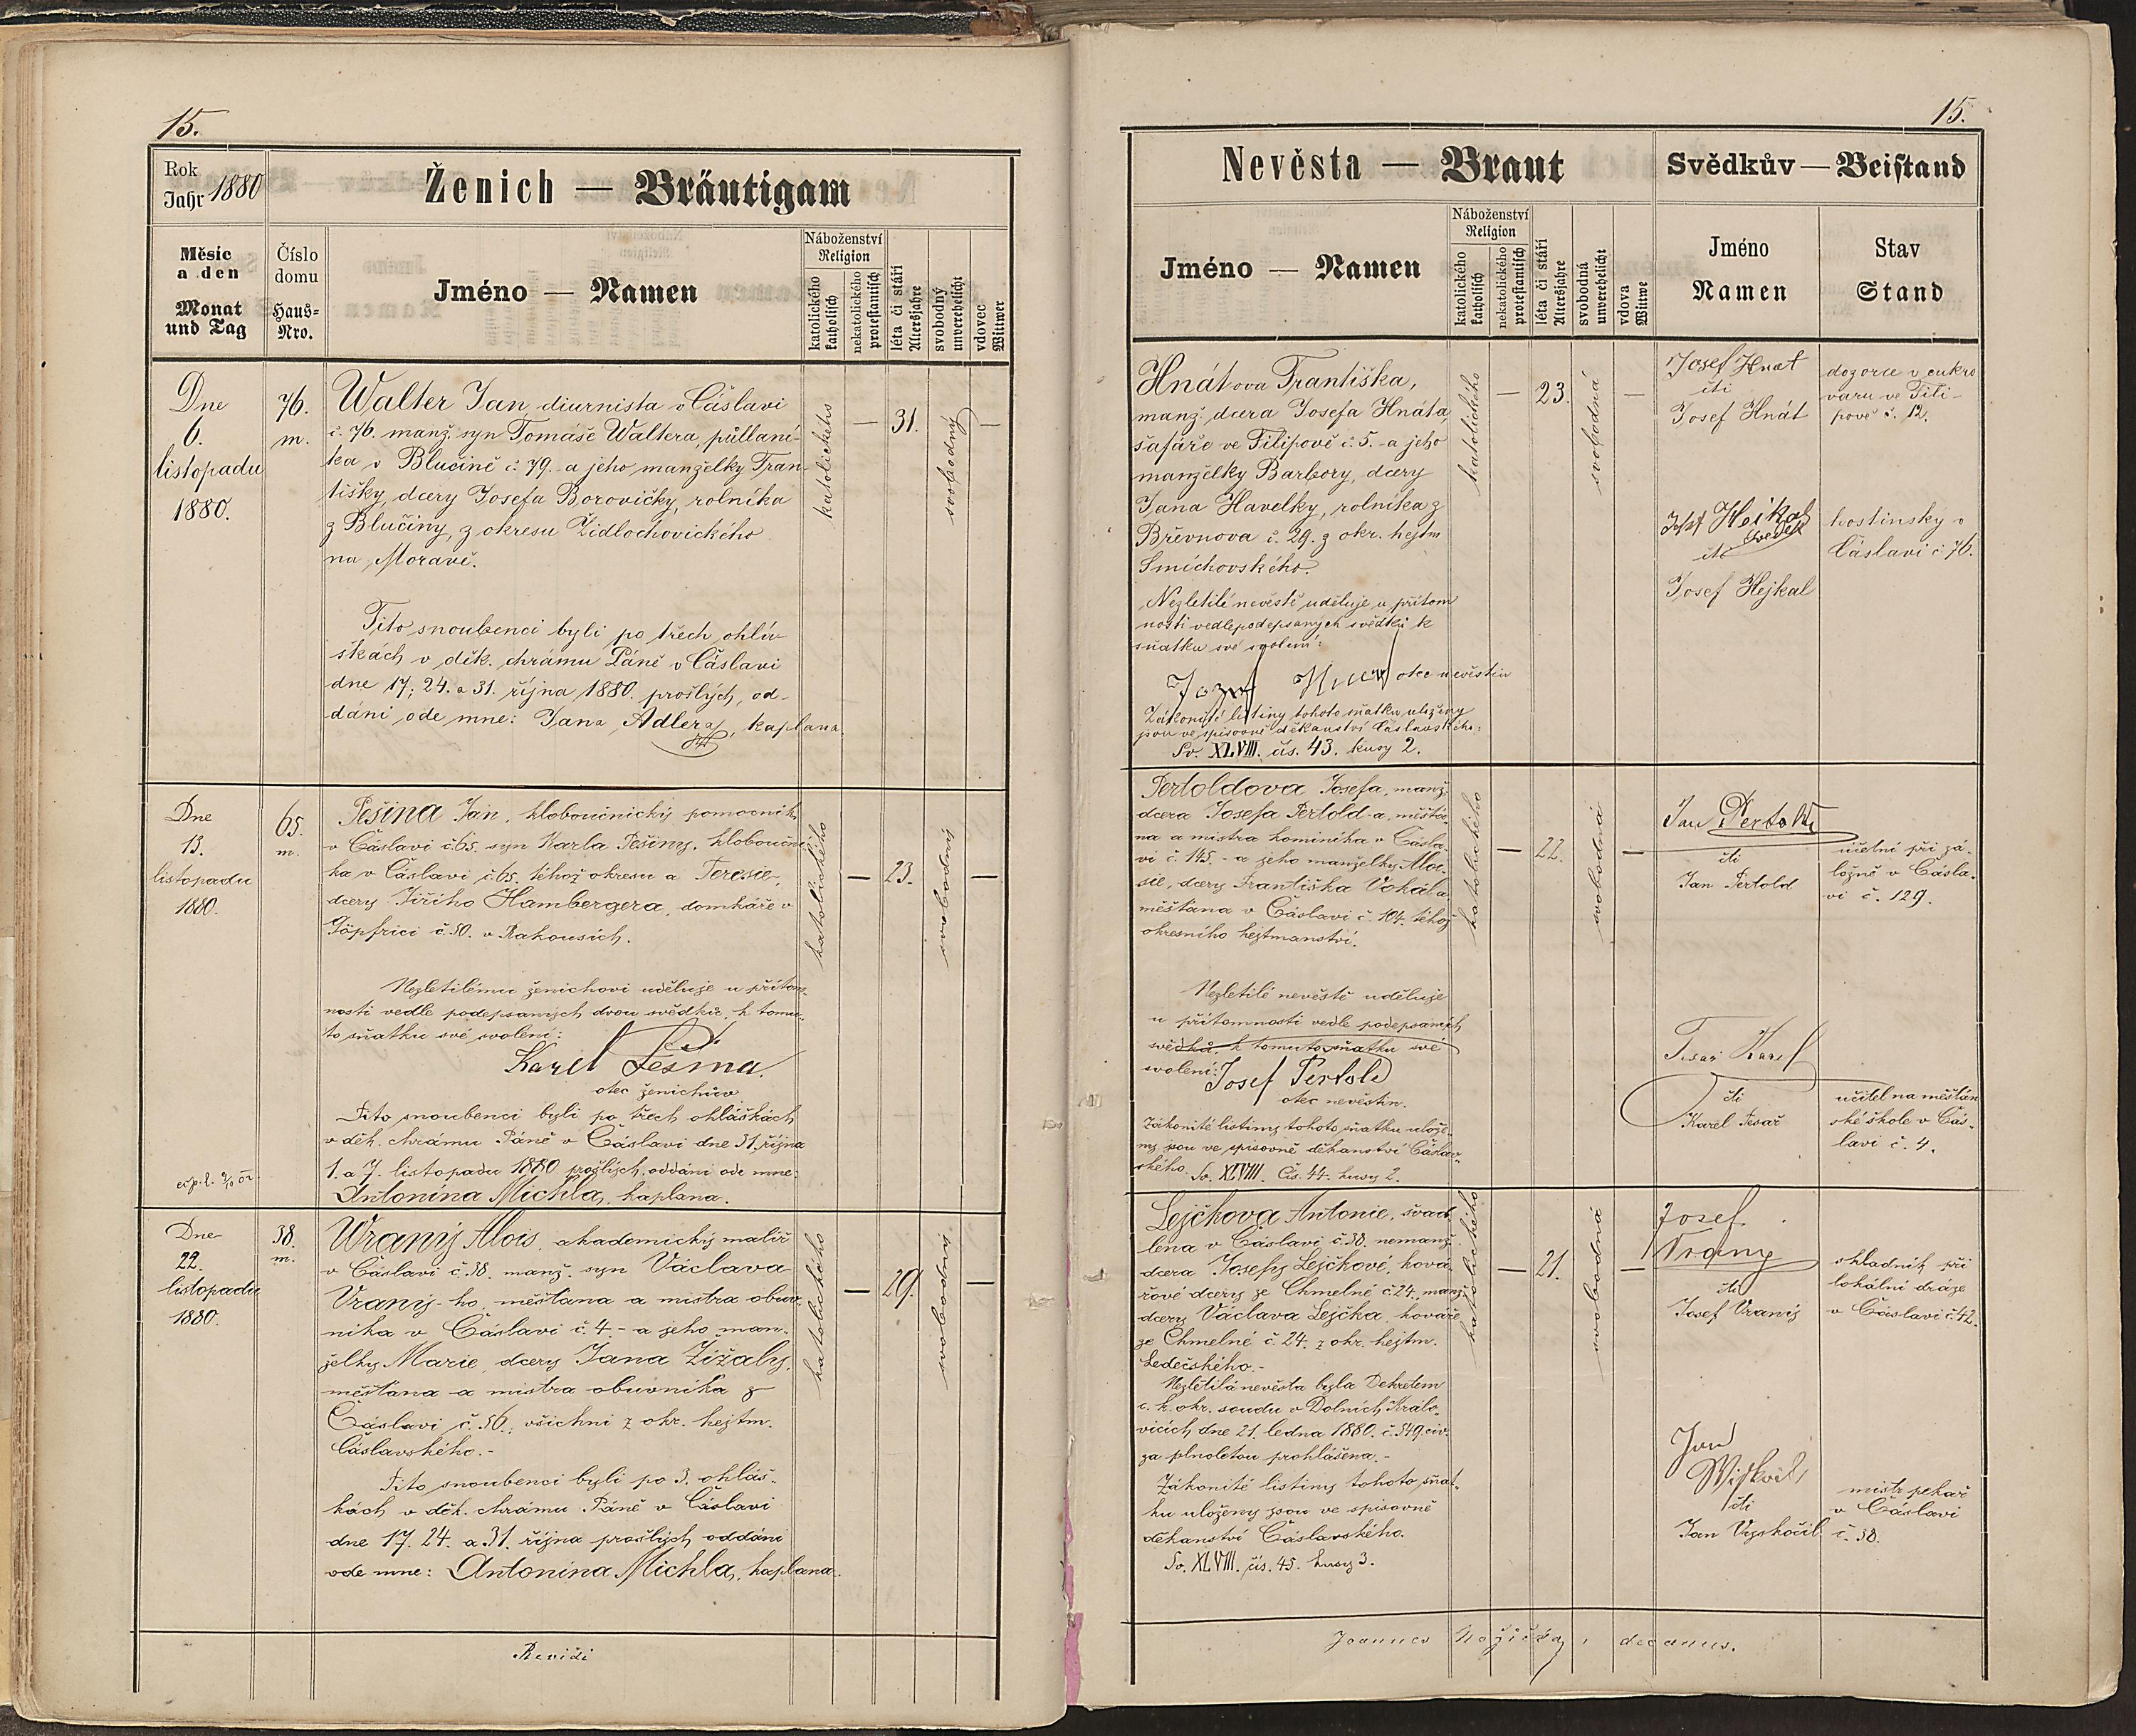 15.
Rok
Jahr 1880
Ženich — Bräutigam
Měsíc
a den
Monat
und Tag
Číslo
domu
Haus-
Nro.
Jméno — Namen
Náboženství
Religion
katolického
katholisch
nekatolického
protestantisch
léta či stáří
Altersjahre
svobodný
unverehelicht
vdovec
Wittwer
Dne
6.
listopadu
1880.
76.
m.
Walter Jan, diurnista v Čáslavi
č. 76. manž. syn Tomáše Waltera, půllaní-
ka v Blučině č. 79. a jeho manželky Fran-
tišky, dcery Josefa Borovičky, rolníka
z Blučiny, z okresu Židlochovického
na Moravě.
katolického
—
31.
svobodný
—
Tito snoubenci byli po třech ohlá-
škách v děk. chrámu Páně v Čáslavi
dne 17., 24. a 31. října 1880. prošlých, od-
dáni ode mne: Jana Adlera, kaplana.
Dne
13.
listopadu
1880.
65.
m.
Pešina Jan, kloboučnický pomocník
v Čáslavi č. 65. syn Karla Pešiny, klobouční-
ka v Čáslavi č. 65. téhož okresu a Teresie,
dcery Jiřího Hambergera, domkáře v
Göpfrici č. 50. v Rakousích.
katolického
—
23.
svobodný
—
Nezletilému ženichovi uděluje u přítom-
nosti vedle podepsaných dvou svědků, k tomu-
to sňatku své svolení:
Karel Pešina
otec ženichův
Tito snoubenci byli po třech ohláškách
v děk. chrámu Páně v Čáslavi dne 31. října
1. a 7. listopadu 1880. prošlých, oddáni ode mne:
Antonína Michla, kaplana.
Dne
22.
listopadu
1880.
38.
m.
Wraný Alois, akademický malíř
v Čáslavi č. 38. manž. syn Václava
Vraný-ho, měšťana a mistra obuv-
níka v Čáslavi č. 4. - a jeho man-
želky Marie, dcery Jana Žížaly,
měšťana a mistra obuvníka z
Čáslavi č. 56., všichni z okr. hejtm.
Čáslavského.-
katolického
—
29.
svobodný
—
Tito snoubenci byli po 3. ohláš-
kách v děk. chrámu Páně v Čáslavi
dne 17. 24. a 31. října prošlých oddáni
ode mne: Antonína Michla, kaplana.
Revidi
15.
Nevěsta — Braut
Svědkův — Beistand
Jméno — Namen
Náboženství
Religion
katolického
katholisch
nekatolického
protestantisch
léta či stáří
Altersjahre
svobodná
unverehelicht
vdova
Wittwe
Jméno
Namen
Stav
Stand
Hnátova Františka,
manž. dcera Josefa Hnáta,
šafáře ve Filipově č. 5. a jeho
manželky Barbory, dcery
Jana Havelky, rolníka z
Břevnova č. 29. z okr. hejtm.
Smíchovského.
katolického
—
23.
svobodná
—
Nezletilé nevěstě uděluje u přítom
nosti vedlepodepsaných svědků k
sňatku své svolení:
otec nevěstin
Zákonité listiny tohoto sňatku uloženy
jsou ve spisovně děkanství Čáslavského:
Sv. XLVIII. čís. 43. kusy 2.
Josef Hnat
čti
Josef Hnát
dozorce v cukro
varu ve Fili-
pově č. 12.
Josef Hejkal
svědek
čti
Josef Hejkal
hostinský v
Čáslavi č. 76.
Pertoldova Josefa, manž.
dcera Josefa Pertold-a, měšťa-
na a mistra kominíka v Čásla-
vi č. 145. - a jeho manželky Aloi-
sie, dcery Františka Vokála,
měšťana v Čáslavi č. 104. téhož
okresního hejtmanství.
katolického
—
22.
svobodná
—
Nezletilé nevěstě uděluje
u přítomnosti vedle podepsaných
svědků, k tomuto sňatku své
svolení:
Josef Pertold
otec nevěstin.
Zákonité listiny tohoto sňatku ulože-
ny jsou ve spisovně děkanství Čáslav-
ského. Sv. XLVIII. Čís. 44. kusy 2.
Jan Pertold
čti
Jan Pertold
účetní při zá-
ložně v Čásla-
vi č. 129.
Tesař Karel
čti
Karel Tesař
učitel na měšťan
ské škole v Čás-
lavi č. 4.
Lejčkova Antonie, švad-
lena v Čáslavi č. 38. nemanž.
dcera Josefy Lejčkové, ková-
řové dcery ze Chmelné č. 24., manž.
dcery Václava Lejčka, kováře
ze Chmelné č. 24. z okr. hejtm.
Ledečského.-
katolického
—
21.
svobodná
—
Nezletilá nevěsta byla Dekretem
c. k. okr. soudu v Dolních Králo-
vicích dne 21. ledna 1880. č. 549. civ.
za plnoletou prohlášena.-
Zákonité listiny tohoto sňat-
ku uloženy jsou ve spisovně
děkanství Čáslavského.
Sv. XLVIII. čís. 45. kusy 3.
Josef
Vrány
čti
Josef Vraný
skladník při
lokální dráze
v Čáslavi č. 42.
Jan
čti
Jan Vyskočil
mistr pekař
v Čáslavi
č. 38.
Joannes Nožička, decanus.